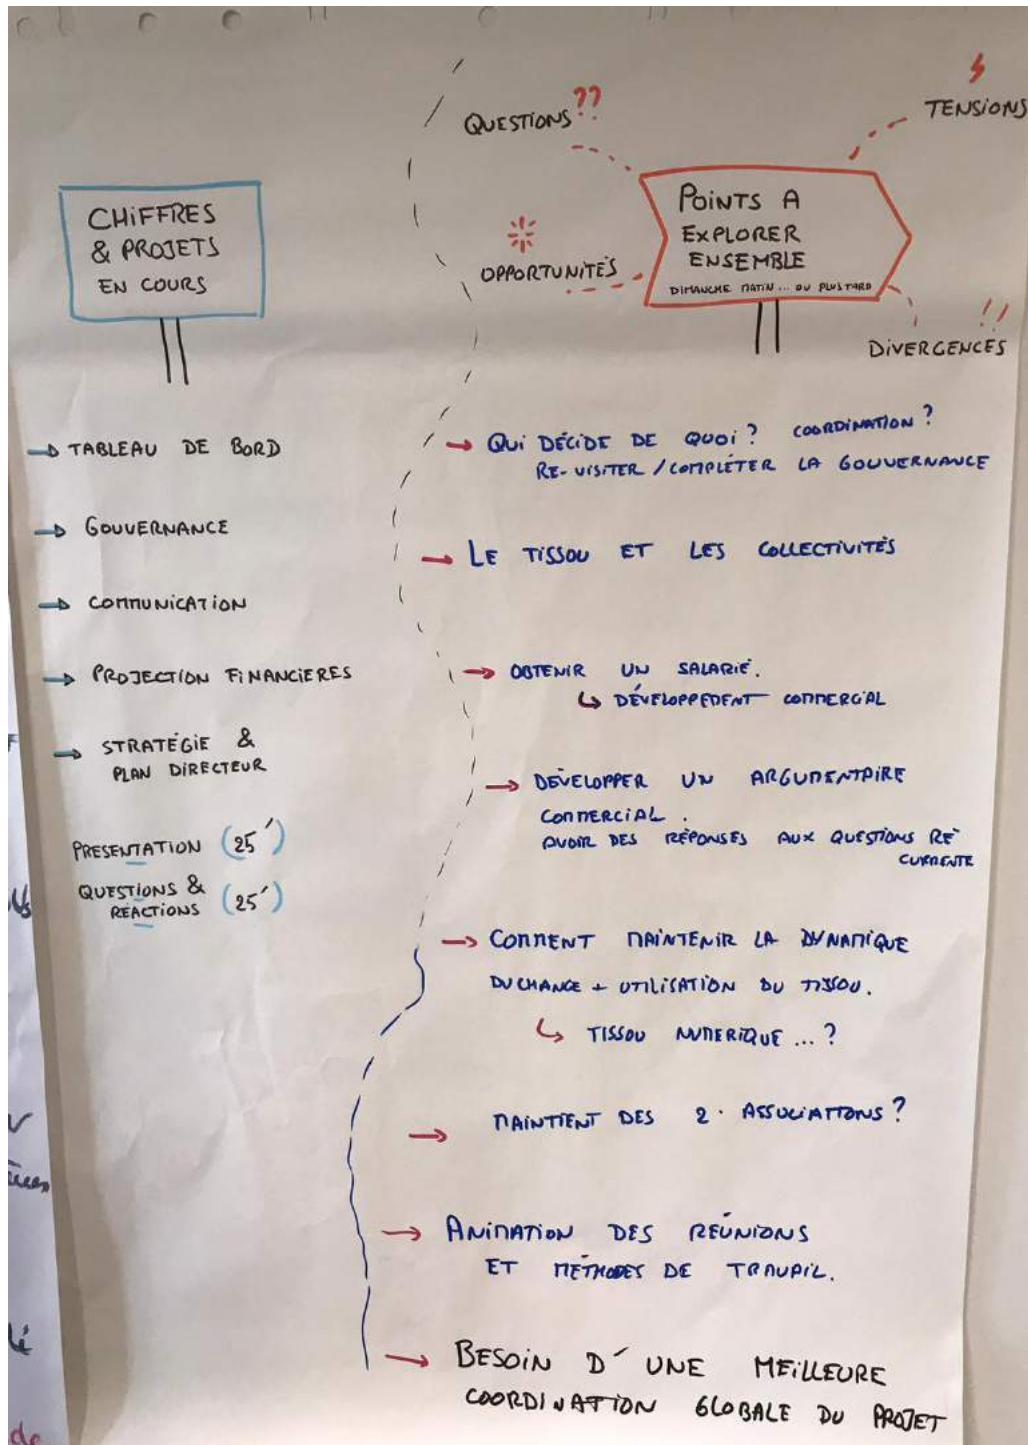 CHIFFRES
& PROJETS
EN COURS
→ TABLEAU DE BORD
→ GOUVERNANCE
→ COMMUNICATION
→ PROJECTION FINANCIERES
→ STRATÉGIE &
PLAN DIRECTEUR
PRESENTATION (25')
QUESTIONS &
RÉACTIONS (25')
QUESTIONS ??
TENSIONS
OPPORTUNITÉS
POINTS A
EXPLORER
ENSEMBLE
DIMANCHE MATIN ... OU PLUS TARD
!!
DIVERGENCES
→ QUI DÉCIDE DE QUOI ? COORDINATION ?
RE-VISITER / COMPLÉTER LA GOUVERNANCE
→ LE TISSOU ET LES COLLECTIVITÉS
→ OBTENIR UN SALARIÉ.
↳ DÉVELOPPEMENT COMMERCIAL
→ DÉVELOPPER UN ARGUMENTAIRE
COMMERCIAL.
AVOIR DES RÉPONSES AUX QUESTIONS RÉ
CURRENTE
→ COMMENT MAINTENIR LA DYNAMIQUE
DU CHANGE + UTILISATION DU TISSOU.
↳ TISSOU NUMERIQUE ... ?
→ MAINTIENT DES 2 ASSOCIATIONS ?
→ ANIMATION DES RÉUNIONS
ET MÉTHODES DE TRAVAIL.
→ BESOIN D'UNE MEILLEURE
COORDINATION GLOBALE DU PROJET
de